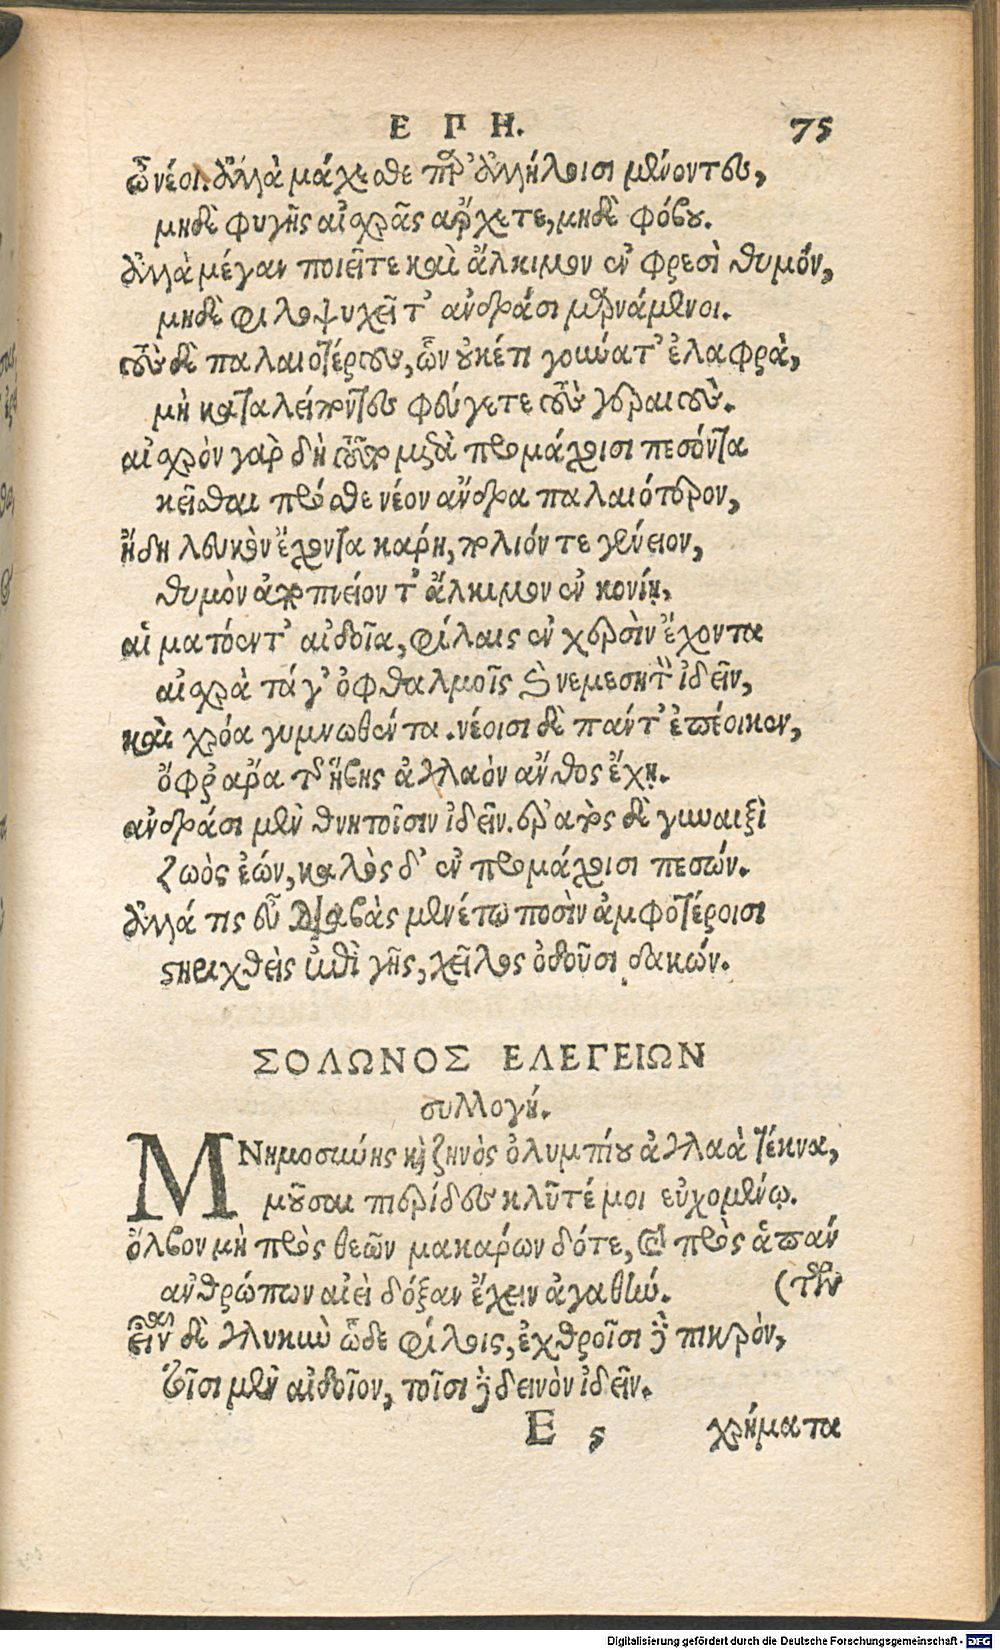 ΕΠΗ. 75
ὦ νέοι. ἀλλὰ μάχεσθε παρ' ἀλλήλοισι μένοντες,
μηδὲ φυγῆς αἰχρᾶς ἄρχετε, μηδὲ φόβου.
ἀλλὰ μέγαν ποιεῖτε καὶ ἄλκιμον ἐν φρεσὶ θυμόν,
μηδὲ φιλοψυχεῖτ' ἀνδράσι μαρνάμενοι.
τοὺς δὲ παλαιοτέρους, ὧν οὐκέτι γούνατ' ἐλαφρὰ,
μὴ καταλείποντες φεύγετε τοὺς γεραιούς.
αἰσχρὸν γὰρ δὴ τοῦτο μετὰ προμάχοισι πεσόντα
κεῖσθαι πρόσθε νέον ἄνδρα παλαιότερον,
ἤδη λευκὸν ἔχοντα κάρη, πολιόν τε γένειον,
θυμὸν ἀποπνείοντ' ἄλκιμον ἐν κονίῃ,
αἱματόεντ' αἰδοῖα, φίλαις ἐν χερσὶν ἔχοντα
αἰσχρὰ τά γ' ὀφθαλμοῖς καὶ νεμεσητὸν ἰδεῖν,
καὶ χρόα γυμνωθέντα. νέοισι δὲ πάντ' ἐπέοικεν,
ὄφρ' ἄρα τῆς ἥβης ἀγλαὸν ἄνθος ἔχῃ.
ἀνδράσι μὲν θνητοῖσιν ἰδεῖν. ἐρατὸς δὲ γυναιξὶ
ζωὸς ἐών, καλὸς δ' ἐν προμάχοισι πεσών.
ἀλλά τις εὖ διαβὰς μενέτω ποσὶν ἀμφοτέροισι
στηριχθεὶς ἐπὶ γῆς, χεῖλος ὀδοῦσι δακών.
ΣΟΛΩΝΟΣ ΕΛΕΓΕΙΩΝ
συλλογή.
ΜΝημοσύνης καὶ ζηνὸς ὀλυμπίου ἀγλαὰ τέκνα,
μοῦσαι πιερίδες κλῦτέ μοι εὐχομένῳ.
ὄλβον μὴ πρὸς θεῶν μακάρων δότε, καὶ πρὸς ἁπάν
ἀνθρώπων αἰεὶ δόξαν ἔχειν ἀγαθήν. (των
εἶναι δὲ γλυκὺ ὧδε φίλοις, ἐχθροῖσι δὲ πικρὸν,
τοῖσι μὲν αἰδοῖον, τοῖσι δὲ δεινὸν ἰδεῖν.
Ε ς χρήματα
Digitalisierung gefördert durch die Deutsche Forschungsgemeinschaft - DFG